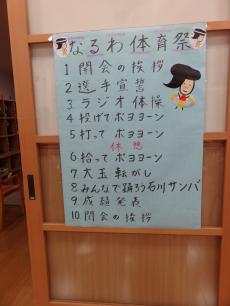 なるわ体育祭
1 開会の挨拶
2 選手宣誓
3 ラジオ体操
4 投げて ポヨヨーン
5 打って ポヨヨーン
休憩
6 拾って ポヨヨーン
7 大玉転がし
8 みんなで踊ろう石川サンバ
9 成績発表
10 閉会の挨拶